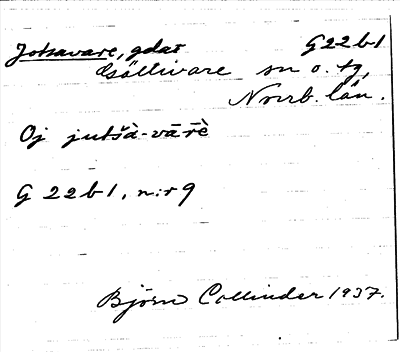 Jotsavare, gdar G22b1
Gällivare sn o. tg,
Norrb. län.
Oj jutšà-vārè
G 22b1, n:r 9
Björn Collinder 1937.